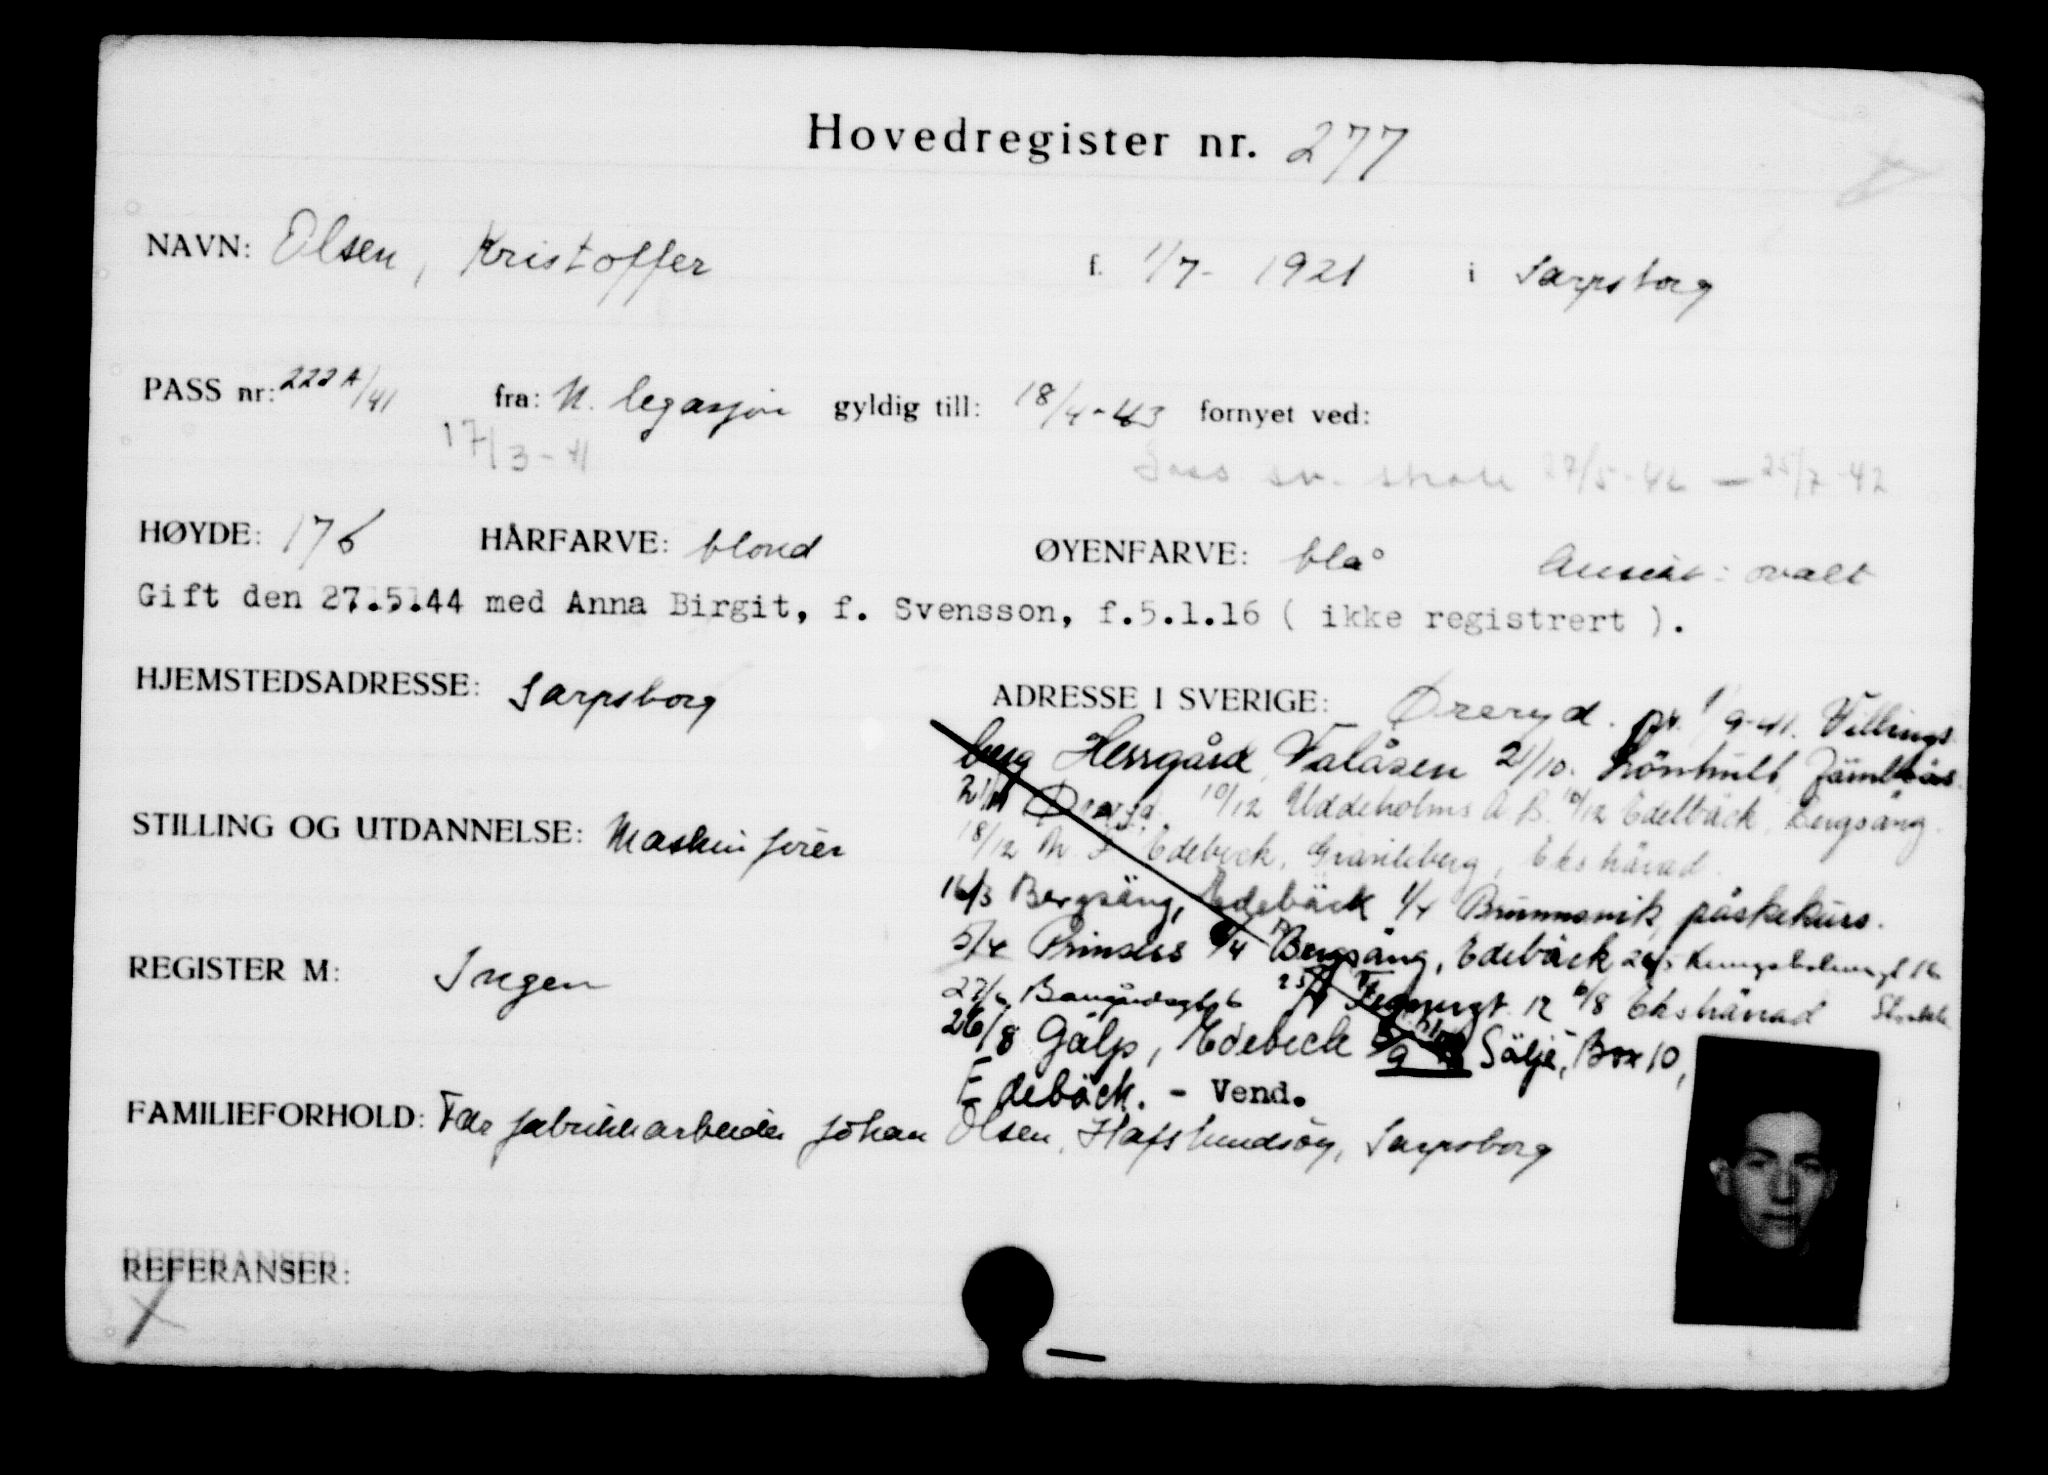 Hovedregister nr. 277
NAVN: Olsen, Kristoffer f. 1/7- 1921 i Sarpsborg
PASS nr: 222A/41 fra: N. legasjon gyldig till: 18/4-43 fornyet ved:
17/3-41 Pass sv. 27/5-42 — 25/7-42
HØYDE: 176 HÅRFARVE: blond ØYENFARVE: blå Ansikt: ovalt
Gift den 27.5.44 med Anna Birgit, f. Svensson, f.5.1.16 ( ikke registrert ).
HJEMSTEDSADRESSE: Sarpsborg ADRESSE I SVERIGE: Øreryd. 9-41. Villings-
berg Herrgård, Valåsen 21/10. Lönhult, Jämtbås.
STILLING OG UTDANNELSE: Maskinfører
21/11 Øreryd. 10/12 Uddeholms A.B. 10/12 Edelbäck, Bergsäng.
18/12 Edebeck, Gravikberg, Ekshärad.
16/3 Bergsäng, Edebäck 1/4 Brunnsvik, påskekurs.
5/4 Prinsess /4 Bergsäng, Edebäck Kungsholmsgt 12
REGISTER M: Ingen
27/6 Bangårdsgt 6 12 10/8 Ekshärad Stockh.
26/8 Gälp, Edebeck Sälje, Box 10,
Edebäck. - Vend.
FAMILIEFORHOLD: Far fabrikkarbeider Johan Olsen, Hafslundsøy, Sarpsborg
REFERANSER:
X